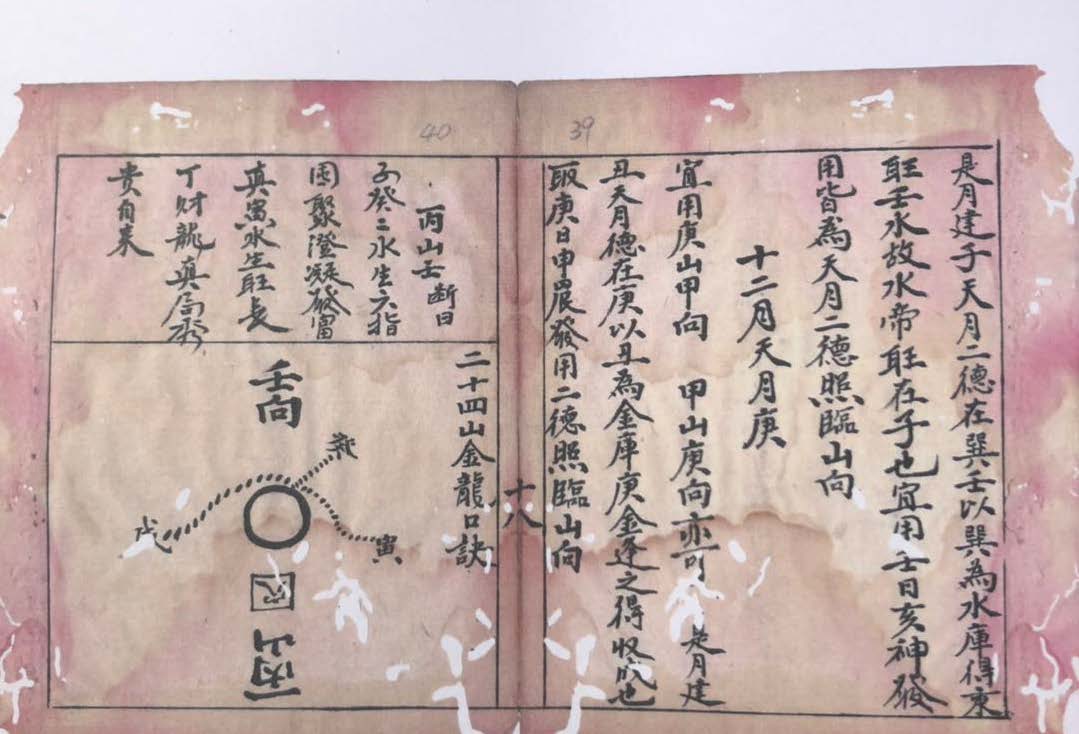 39
是月建子天月二德在巽壬以巽為水庫得東
旺壬水故水帝旺在子也宜用壬日亥神發
用皆為天月二德照臨山向
十二月天月庚
宜用庚山甲向 甲山庚向亦可 是月建
丑天月德在庚以丑為金庫庚金逢之得收成也
取庚日申晨發用二德照臨山向
十八
40
二十四山金龍口訣
丙山壬 断曰
子癸二水生六指
囷聚澄凝發富
真寅水生旺長
丁財龍真局秀
貴自来
壬向
戌
寅
穴
丙山